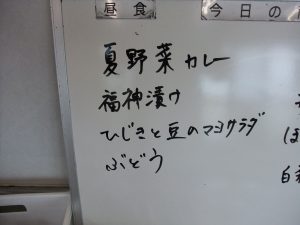 昼食
今日の
夏野菜カレー
福神漬け
ひじきと豆のマヨサラダ
ぶどう
ほ
白